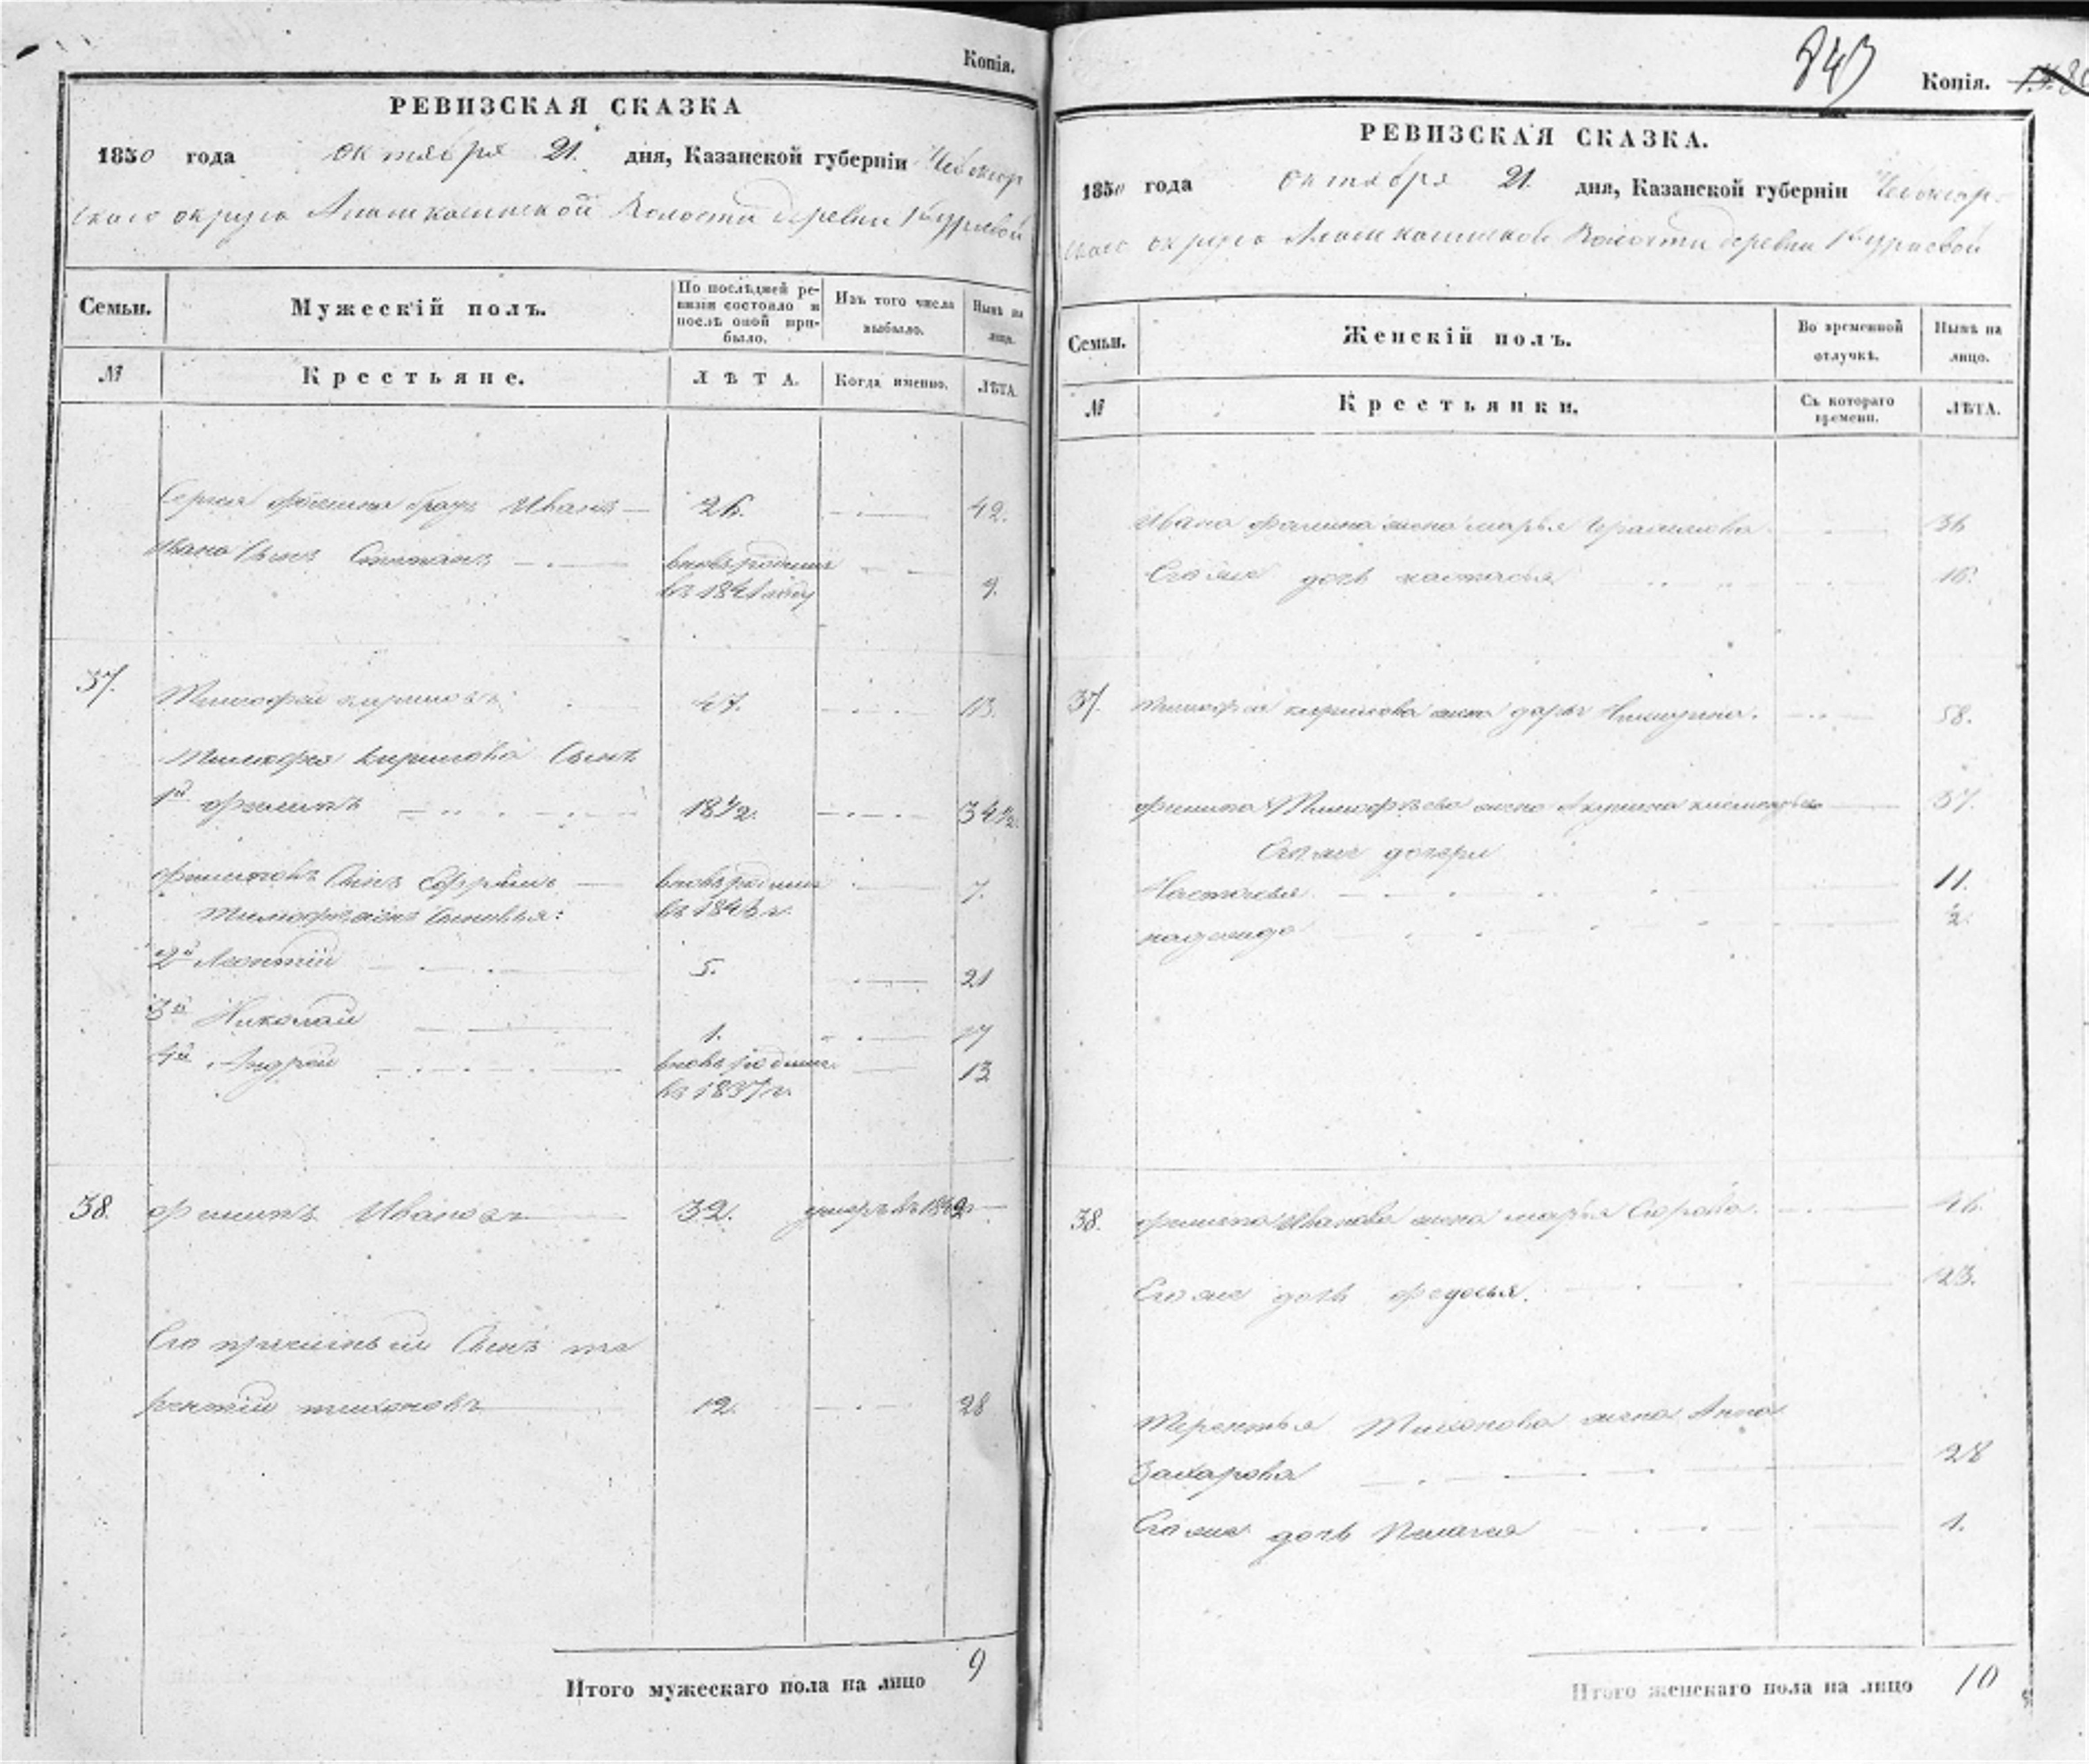 Копія.
РЕВИЗСКАЯ СКАЗКА
1850 года октября 21. дня, Казанской губерніи Чебоксар
скаго округа Волости деревни
Семьи. Мужескій полъ. По послѣдней ре-визіи состояло и послѣ оной при-было. Изъ того числа выбыло. Нынѣ на лицо.
№ Крестьяне. ЛѢТА. Когда именно. ЛѢТА.
Сергея Фомина братъ Иванъ 26. 42.
Ивана Сынъ Степанъ вновьрожден
въ 1841 году 9.
37. Тимофей Кириловъ 47.
Тимофея Кирилова Сынъ
1й Филипъ 18 1/2. 34 1/2.
Филиповъ Сынъ Ефремъ вновьрожден 7.
Тимофеевы Сыновья: въ 1843 г.
2й Леонтий 5. 21
3й Николай 1. 17
4й Андрей вновьрожден 13
въ 1837 г.
38. Филипъ Ивановъ 32. умеръ въ 1849
Его приемный Сынъ те
рентий тихоновъ 12. 28
Итого мужескаго пола на лицо 9
343 Копія.
РЕВИЗСКАЯ СКАЗКА.
1850 года октября 21. дня, Казанской губерніи Чебоксар-
скаго округа Волости деревни
Семьи. Женскій полъ. Во временной отлучкѣ. Нынѣ на лицо.
№ Крестьянки. Съ котораго времени. ЛѢТА.
Ивана Фомина жена марья 36
Его же дочь настасья 16.
37. Тимофея кирилова жена дарья 58.
Филипа Тимофеева жена Акулина 37.
Его же дочери
Настасья 11.
надежда 2.
38. Филипа Иванова жена марья 46.
Его же дочь федосья. 23.
Терентья Тихонова жена Анна
Захарова 28
Его же дочь Пелагея 1.
Итого женскаго пола на лицо 10